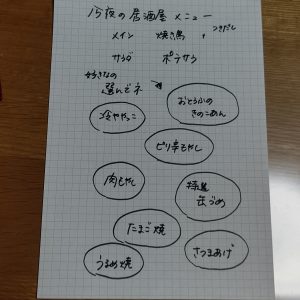 今夜の居酒屋メニュー
メイン 焼き鳥, つきだし
サラダ ポテサラ
好きなの
選んどネ
おとうふの
きのこあん
冷ややっこ
ピリ辛もやし
肉もやし
特製
缶づめ
たまご焼
うすめ焼
さつまあげ